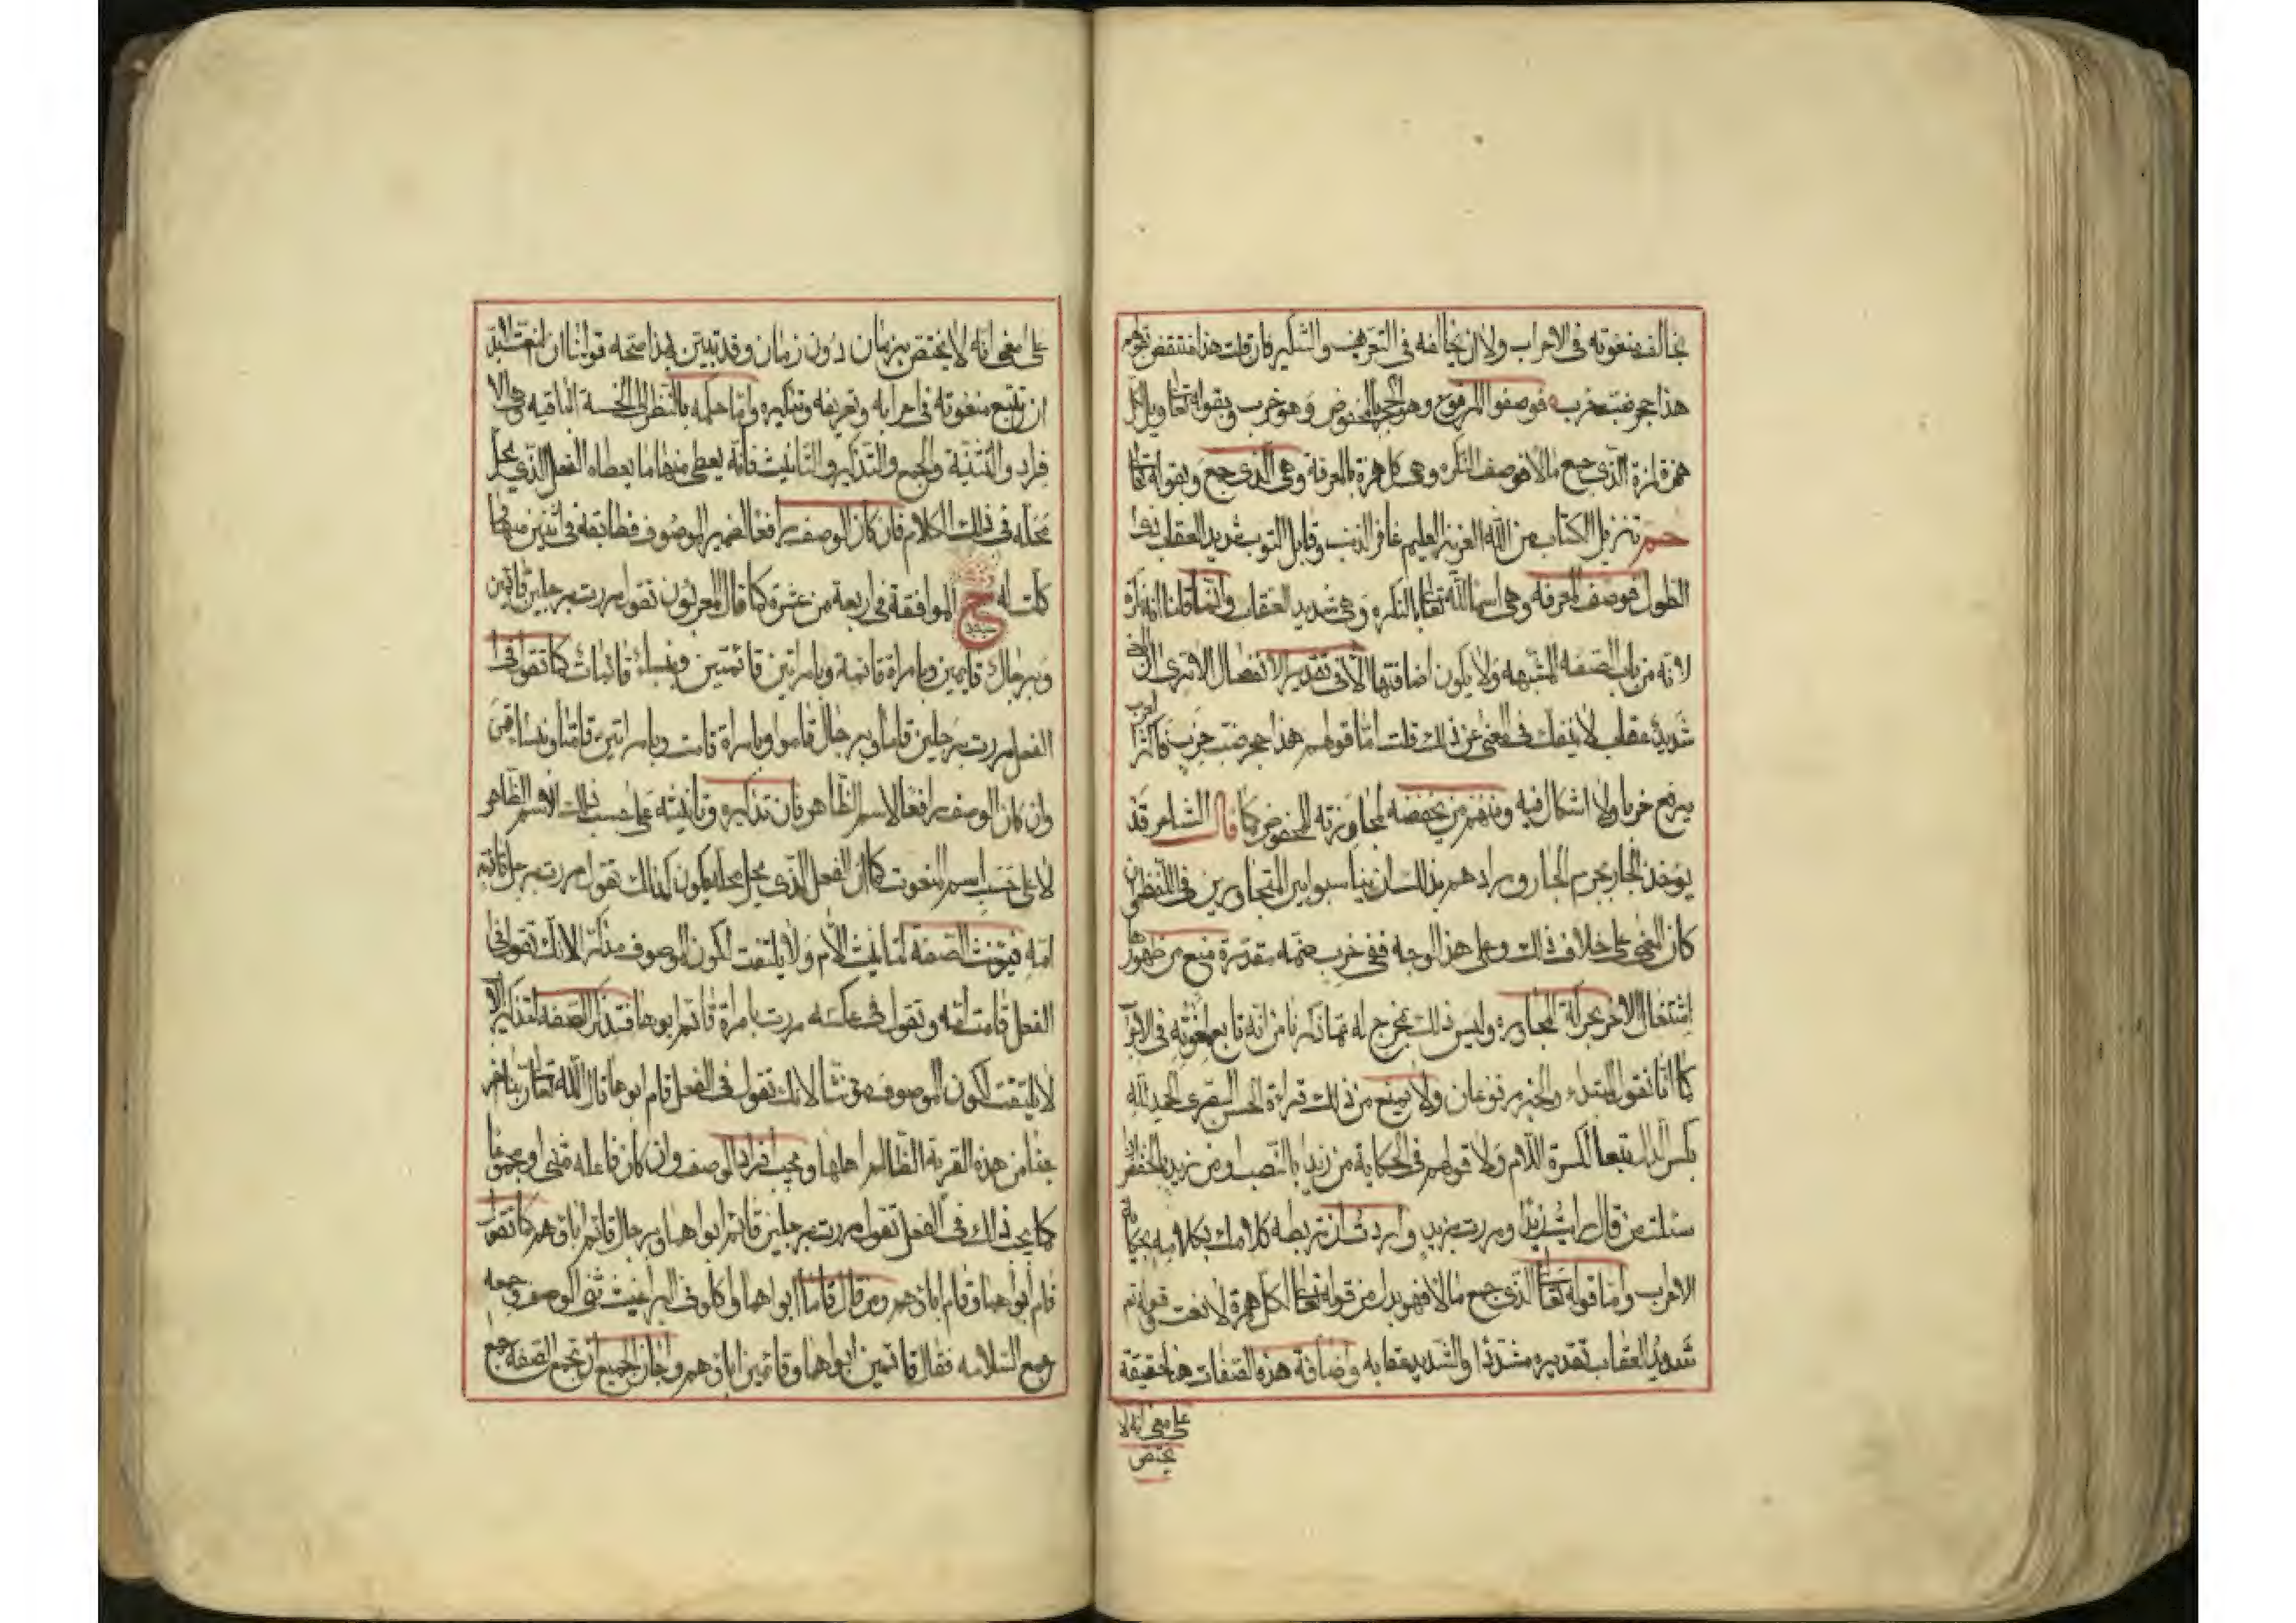 يخالف منعوته في الاعراب ولا ان يخالفه في التعريف والتنكير فان قلت هذا منتقض بقولهم
هذا جحر ضب خرب فوصفوا المرفوع وهو جحر بالمخفوض وهو خرب وبقوله تعالى ويل لكل
همزة لمزة الذي جمع مالا فوصف النكره وهي كل همزة بالمعرفة وهي الذي جمع وبقوله تعالى
حم تنزيل الكتاب من الله العزيز العليم غافر الذنب وقابل التوب شديد العقاب ذي
الطول فوصف المعرفه وهي اسم الله تعالى بالنكره وهي شديد العقاب وانما قلنا انه نكرة
لانه من باب الصفه المشبهه ولا يكون اضافتها الا في تقدير الانفصال الا ترى ان
شديد عقاب لا ينفك في المعنى عن ذلك قلت اما قولهم هذا جحر ضب خرب فاكثر العرب
يرفع خربا ولا اشكال فيه ومنهم من يخفضه لمجاورته المخفوض كما قال الشاعر قد
يوخذ الجار بجرم الجار ومرادهم بذلك ان يناسبوا بين المتجاورين في اللفظ وان
كان المعنى على خلاف ذلك وعلى هذا الوجه ففي خرب ضمه مقدرة منع من ظهورها
اشتغال الاخر بحركة المجاوره وليس ذلك بمخرج له عما ذكرنا من انه تابع لمنعوته في الاعراب
كما انا نقول المبتدء والخبر مرفوعان ولا يمنع من ذلك قراءة الحسن البصري الحمد لله
بكسر الدال تبعا لكسرة اللام ولا قولهم في الحكاية من زيدا بالنصب ومن زيد بالخفض اذا
سئلت من قال رايت زيدا ومررت بزيد واردت ان تربط كلامك بكلامه بحكاية
الاعراب واما قوله تعالى الذي جمع مالا فهو بدل من قوله تعالى لكل همزة لا نعت وقوله تم
شديد العقاب تقديره مشددا والشديد عقابه واضافة هذه الصفات هنا حقيقة
على معنى انه لا
يختص
على معنى انه لا يختص بزمان دون زمان وقد تبين بهذا صحه قولنا ان النعت لابد
ان يتبع منعوته في اعرابه وتعريفه وتنكيره واما حكمه بالنظر الى الخمسة الباقيه وهي الا
فراد والتثنية والجمع والتذكير والتانيث فانه يعطى منها ما يعطاه الفعل الذي يحل
محله في ذلك الكلام فان كان الوصف رافعا لضمير الموصوف فطابقه في اثنين منها
كملت له ح الموافقة في اربعة من عشرة كما قال المعربون تقول مررت برجلين قائمين
وبرجال قايمين وبامراة قائمة وبامراتين قائمتين وبنساء قائمات كما تقول في
الفعل مررت برجلين قاما وبرجال قاموا وبامراة قامت وبامراتين قامتا وبنساء قمن
وان كان الوصف رافعا لاسم الظاهر فان تذكيره وتانيثه على حسب ذلك الاسم الظاهر
لا على حسب اسم المنعوت كما ان الفعل الذي يحل محله يكون كذلك تقول مررت برجل قائمة
امه فيؤنث الصفة لتانيث الام ولا يلتفت لكون الموصوف مذكرا لانك تقول في
الفعل قامت امه وتقول في عكسه مررت بامراة قائم ابوها فتذكر الصفه لتذكير الاب
لا يلتفت لكون الموصوف مؤنثا لانك تقول في الفعل قام ابوها قال الله تعالى ربنا اخر
جنا من هذه القرية الظالم اهلها ويجب افراد الوصف وان كان فاعله مثنى او مجموعا
كما يجب ذلك في الفعل تقول مررت برجلين قائم ابواهما وبرجال قائم اباؤهم كما تقول
قام ابواهما وقام اباؤهم ومن قال قاما ابواهما واكلوني البراغيث ثنى الوصف وجمعه
جمع السلامه فقال قائمين ابواهما وقائمين اباؤهم واجاز الجميع ان تجمع الصفة جمع